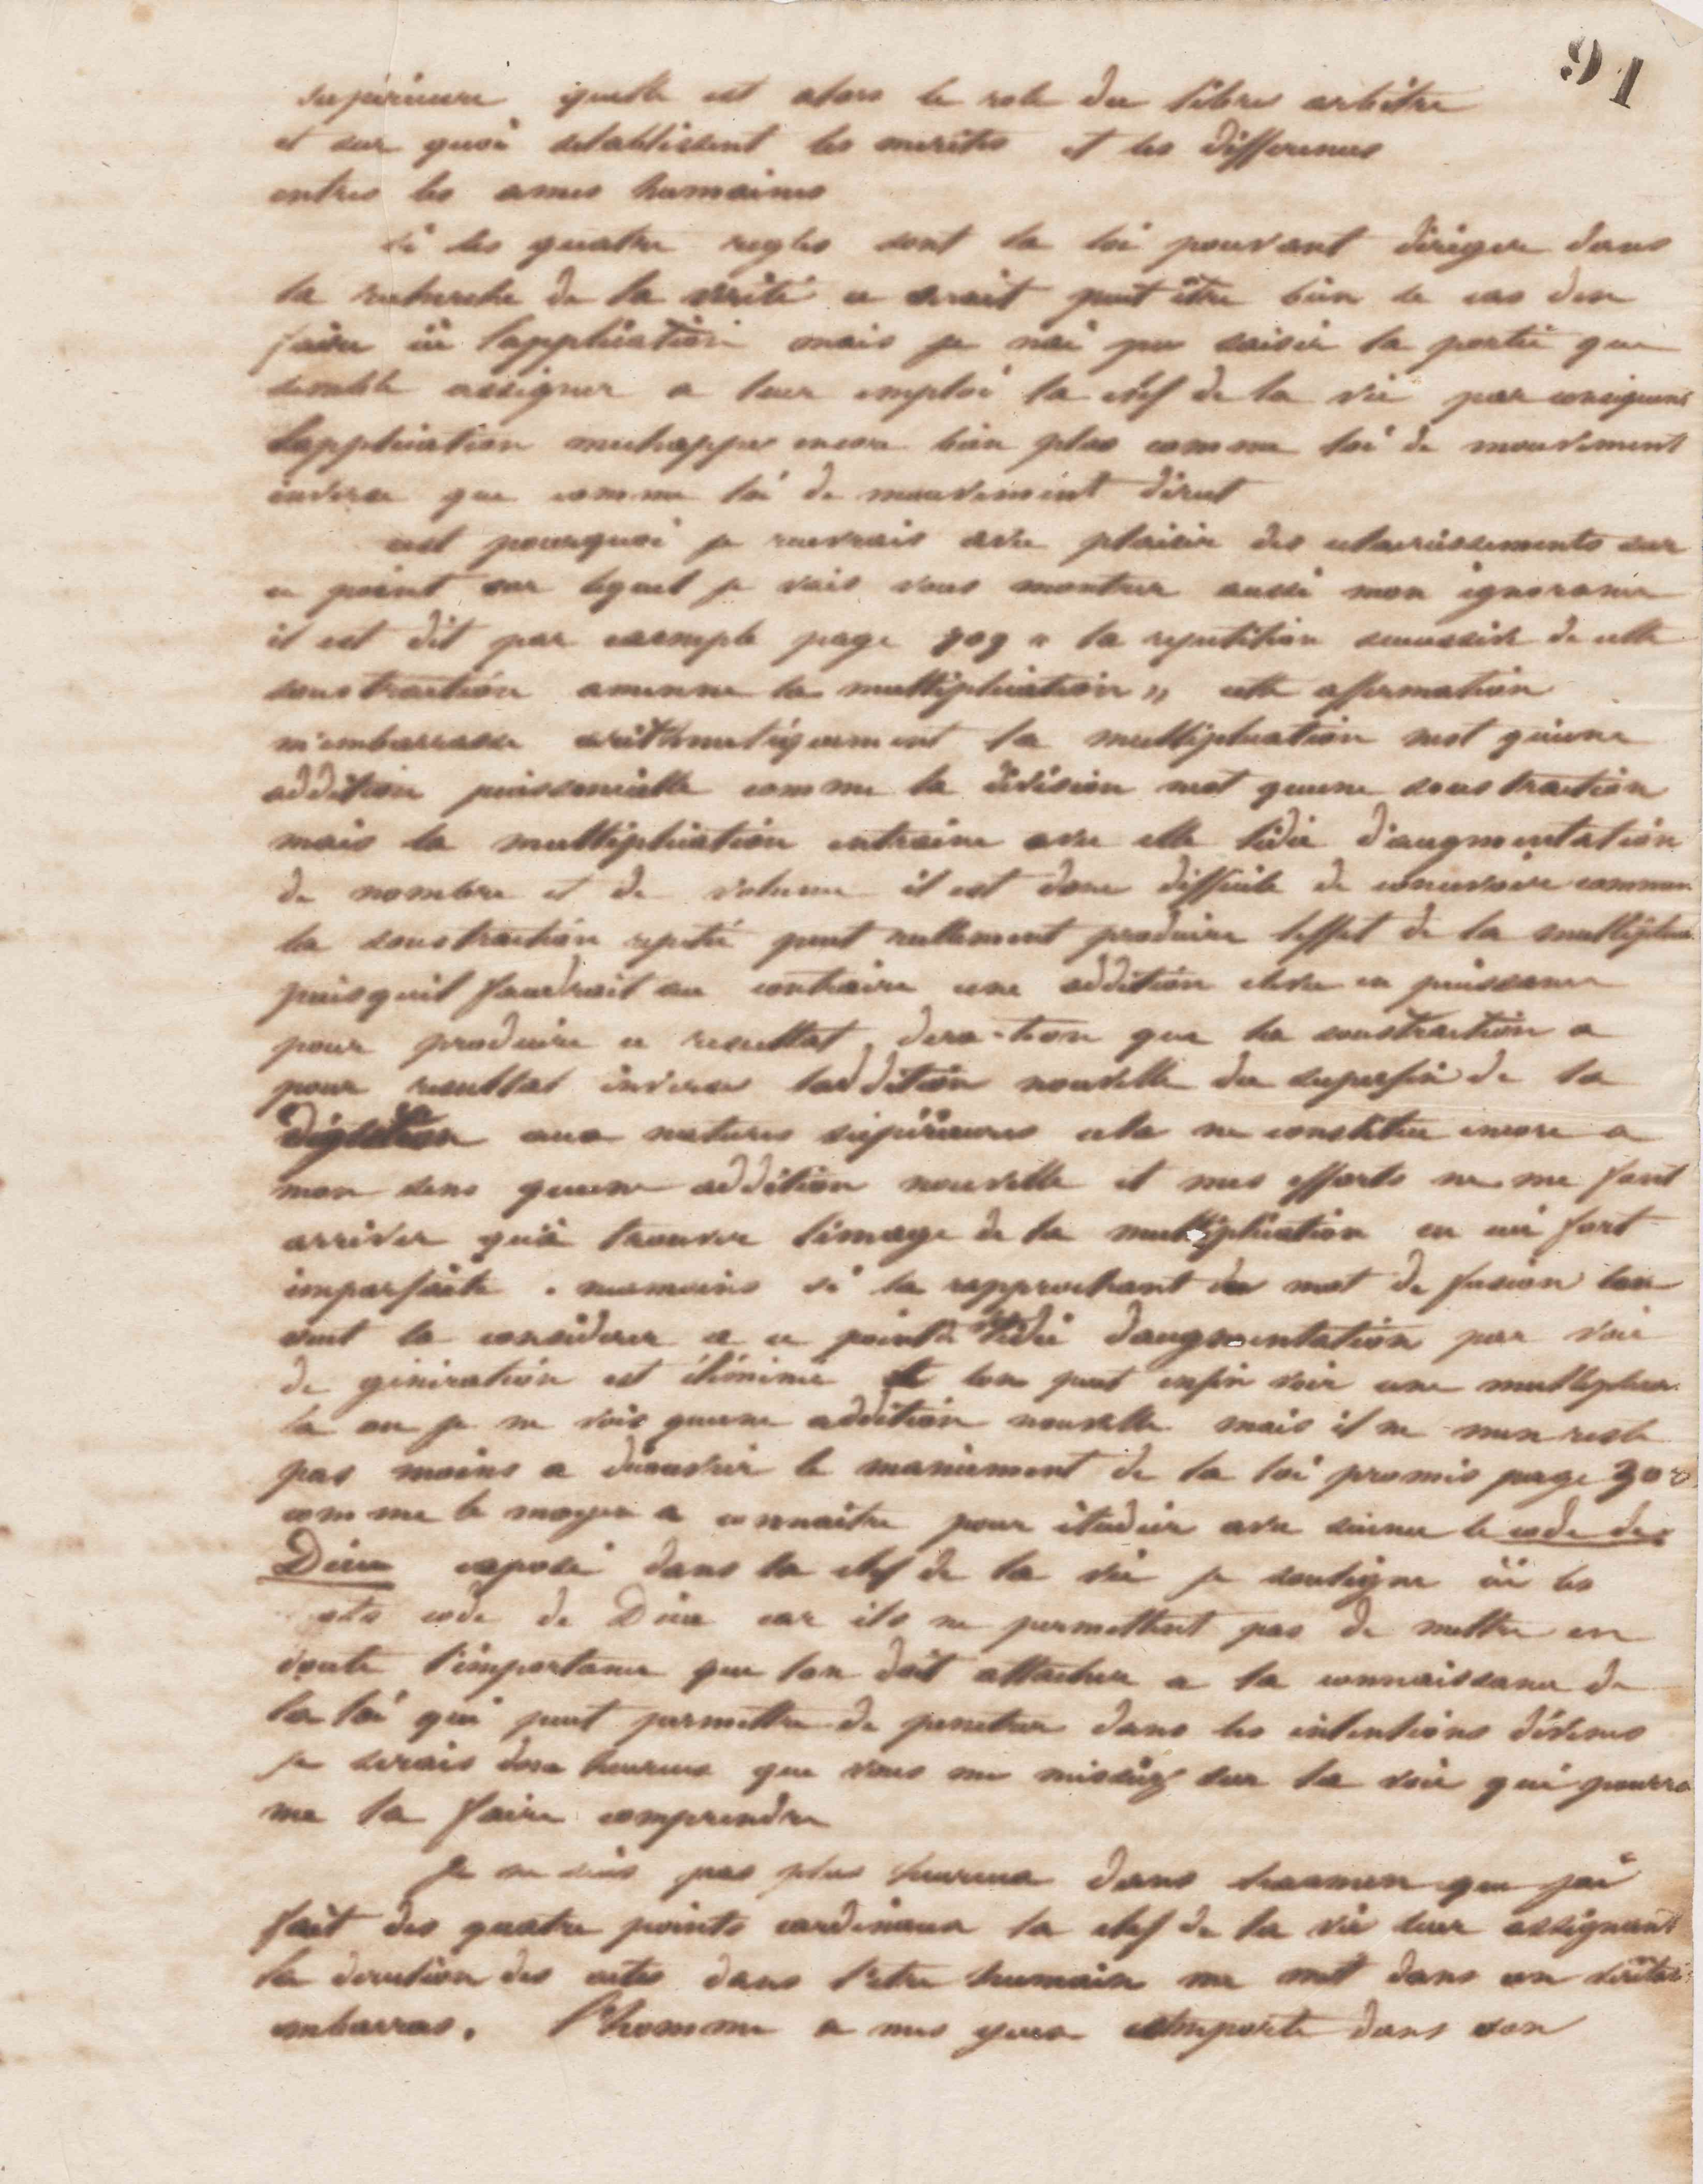 91
superieure quelle est alors le role du libre arbitre
et sur quoi setablissent les merites et les differences
entres les ames humaines
si les quatre regles sont la loi pouvant diriger dans
la recherche de la verité ce serait peut être bien le cas den
faire ici lapplication mais je nai pu saisir la portée que
semble assigner a leur emploi la clef de la vie par consequent
lapplication mechappe encore bien plus comme loi de mouvement
inverse que comme loi de mouvement direct
cest pourquoi je recevrais avec plaisir des eclaircissements sur
ce point sur lequel je vais vous montrer aussi mon ignorance
il est dit par exemple page 709 " la repetition successive de cette
soustraction amenne la multiplication " cette affirmation
m'embarrasse arithmetiquement la multiplication nest qu'une
addition puissancielle comme la division nest quune soustraction
mais la multiplication entraine avec elle lidée d'augmentation
de nombre et de volume il est donc difficile de concevoir comment
la soustraction repetée peut nullement produire leffet de la
puisquil faudrait au contraire une addition elevée en puissance
pour produire ce resultat. dira-t-on que la soustraction a
pour resultat inverse laddition nouvelle du superfin de la
digestion aux natures supérieures cela ne constitue encore a
mon sens quune addition nouvelle et mes efforts ne me font
arriver quà trouver l'image de la multiplication en ceci fort
imparfaite. neamoins si la rapprochant du mot de fusion lon
veut la considerer a ce point lidée daugmentation par voie
de géneration est éliminée et lon peut enfin voir une
la ou je ne vois quune addition nouvelle mais il ne men reste
pas moins a decouvrir le maniement de la loi promis page
comme le moyen a connaitre pour étudier avec science le code de
Dieu exposé dans la clef de la vie je souligne ici les
mots code de Dieu car ils ne permettent pas de mettre en
doute l'importance que lon doit attacher a la connaissance de
la loi qui peut permettre de penetrer dans les intentions divines
je serais donc heureux que vous me missiez sur la voie qui pourra
me la faire comprendre
Je ne suis pas plus heureux dans lexamen que jai
fait des quatre points cardinaux la clef de la vie leur assignant
la direction des actes dans l'etre humain me met dans un
embarras. l'homme a mes yeux emporte dans son